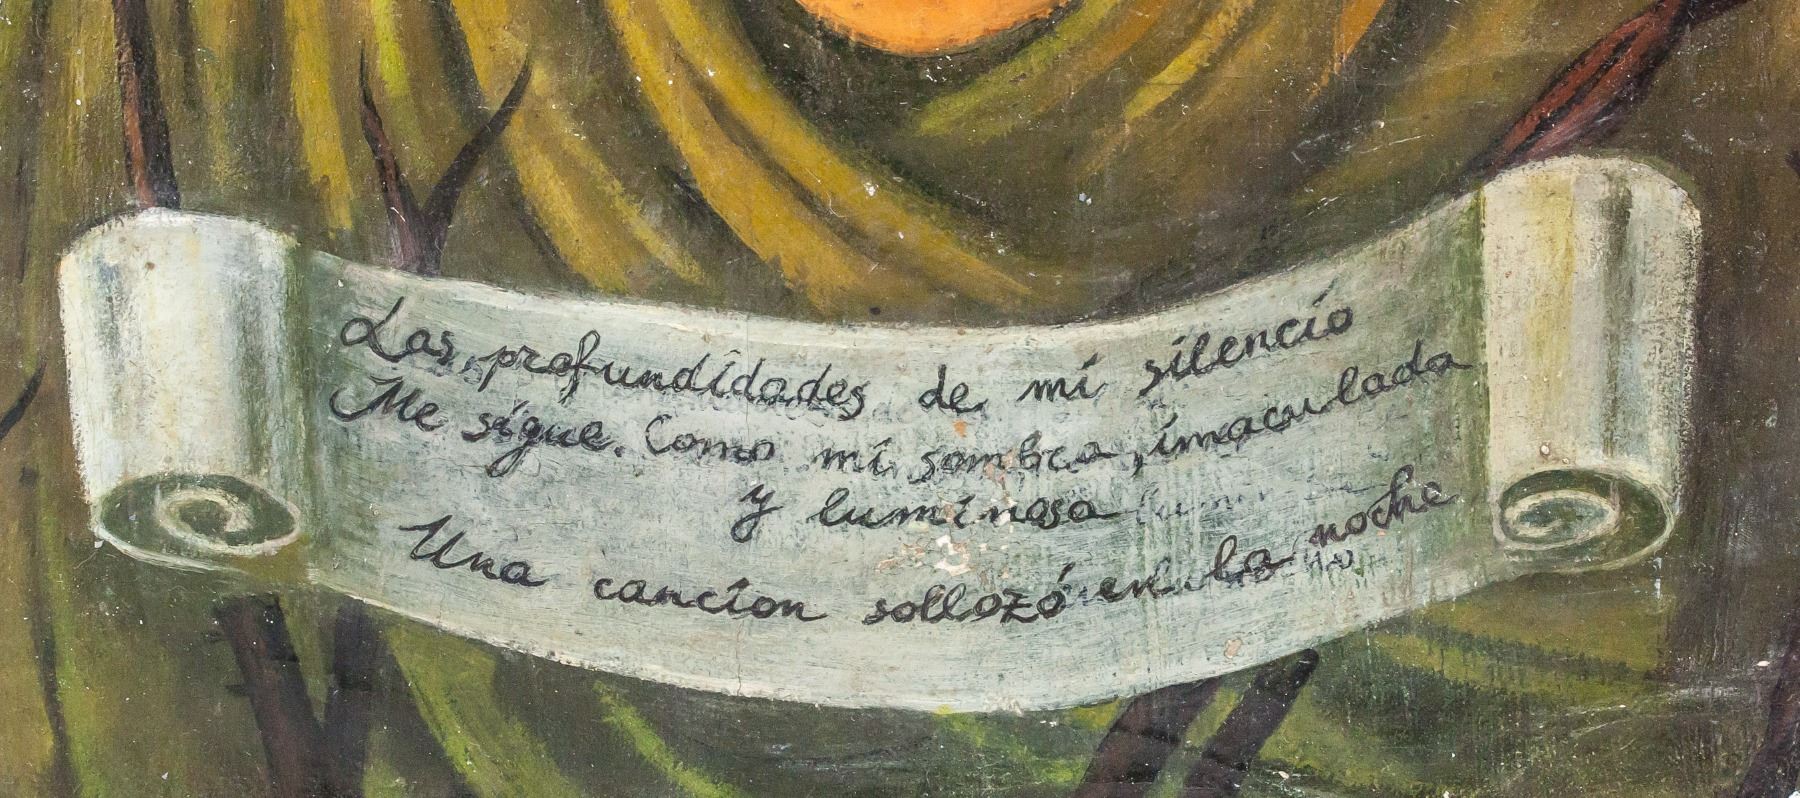 Las profundidades de mi silencio
Me sigue. Como mi sombra, imaculada
y luminosa
Una cancion sollozó en la noche